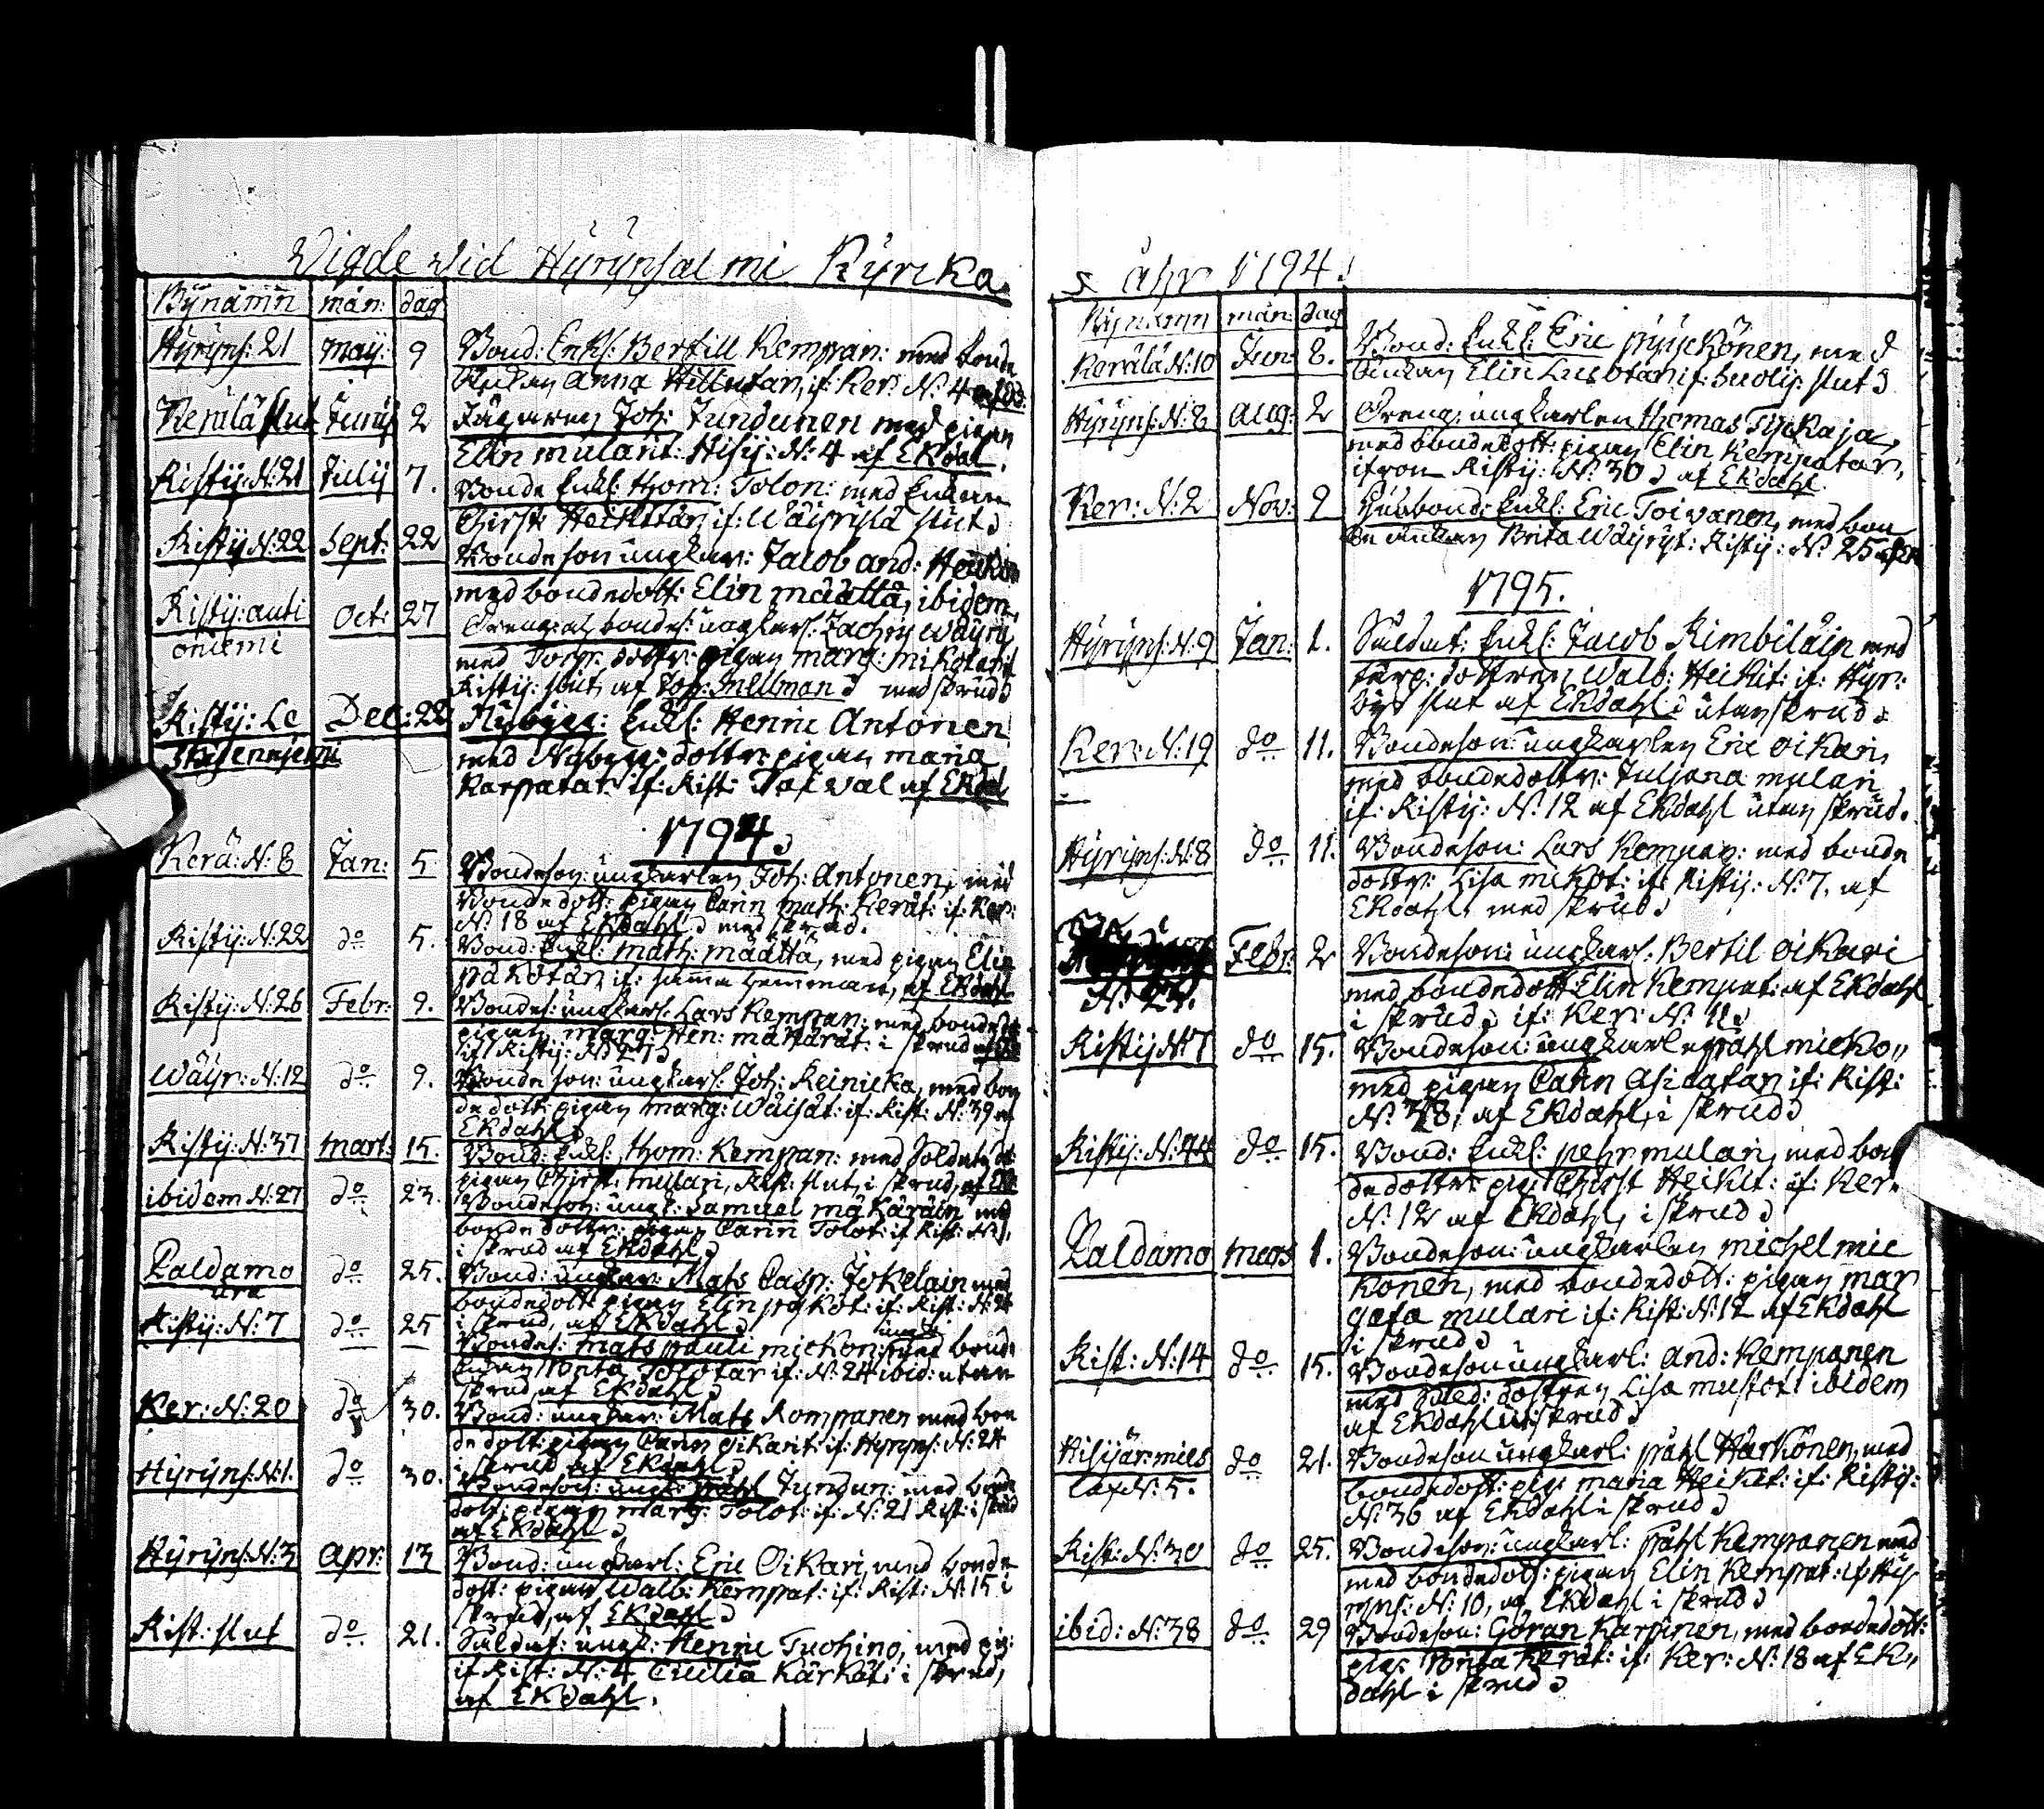 Vigde vid Hyrynsalmi Kyrcka
Bynamn mån: dag
Hyryns: 21 may: 9 Bond: Enkl: Bertill Kempan: med bonde
Änkan Anna Hillutar, if: Ker: N: 4
Kerälä slut Junij 2 Jägaren Joh: Jundunen med pigan
Elin mularit: Hisij: N: 4 af Ekdal.
Ristij: N: 21 Julij 7. Bonde Enkl: Thom: Tolon: med Enkan
Christ: Heikitar if: Wäisyslä slut
Ristij N: 22 Sept: 22 Bondeson ungkar: Jacob and: Heiki
med bondedott: Elin määttä, ibidem,
Ristij: anti oct: 27 Dreng: bondes: ungkarl: Zachris Wäyry
oniemi med Torp: dottr: pigan marg: mikotarit
Ristij: slut, af Joh: Snellman med skrud
Ristij: Le Dec: 22 Nybygg: Enkl: Henric Antonen
med Nybygg: dottr: pigan maria
Karpatar if: Rist: af Ekdal
1794
Kerä: N: 8 Jan: 5 Bondeson: ungkarlen Joh: Antonen, med
Bondedott: pigan Carin math: Kerät: if: Ker:
N: 18 af Ekdahl med skrud.
Ristij: N: 22 do 5. Bond: Enkl: math: määttä, med pigan Elin
påkotar if: samma hemman, af Ekdahl
Ristij: N: 26 Febr: 9. Bondes: ungkarl: Lars Kempan: med bondedot
pigan marg: Hen: mattarat: i skrud
if Ristij: N: 27
Wäyr: N: 12 do 9. Bondeson: ungkarl: Joh: Reinicka, med bon
dedott: pigan marg: Wäisät: if: Rist: N: 39 af
Ekdahl
Ristij: N: 37 mart: 15. Bond: Enkl: Thom: Kempan: med Soldate
pigan Christ: mullari, Rist: slut, i skrud,
ibidem N: 27 do 23. Bondeson: ungk: Samuel mäkäräin med
bondedottr: pigan Carin Tolot: if Rist: N: 1,
i skrud af Ekdahl
Paldamo do 25. Bond: ungkar: Mats Casp: Jokelain med
bondedott: pigan Elin påkot: if: Rist: N: 24
i skrud, af Ekdahl
Ristij: N: 7 do 25 Bondes: mats pauli mickon: med bond:
Enkan Brita Tolotar if: N: 24 ibid: utan
skrud af Ekdahl
Ker: N: 20 do 30. Bond: ungkar: Mats Kompanen med bon
dedott: pigan Carin oikarit: if: Hyryns: N: 24
i skrud af Ekdahl
Hyryns: N: 1. do 30. Bondeson: ungk: påhl Jundun: med bonde
dott: pigan marg: Tolot: if: N: 21 Rist: i skrud
af Ekdahl
Hyryns: N: 3 apr: 13 Bond: ungkarl: Eric Oikari, med bonde
dott: pigan Walb: Kempat: if: Rist: N: 15 i
skrud, af Ekdahl
Rist: slut do 21. Saldat: ungk: Henric Tuohino, med pig:
if Rist: N: 4 Cicilia Kärkät: i skrud,
af Ekdahl.
åhr 1794.
Bynamn mån: dag
Kerälä N: 10 Jun: 8. Bond: Enkl: Eric pyyckönen, med
änkan Elin Lusotar if: Suolij: slut
Hyryns: N: 8 aug: 2 Dreng: ungkarlen Thomas Tyckaja,
med bondedott: pigan Elin Kempatar,
ifron Ristij: N: 30 af Ekdahl.
Ker: N: 2 Nov: 9 Husbond: Enkl: Eric Toivanen, med bon
de änkan Brita Wäyryt: Ristij: N: 25
1795.
Hyryns: N: 9 Jan: 1. Saldat: Enkl: Jacob Kimbiläin med
torp: dottren Walb: Heikit: if: Hyr:
by slut af Ekdahl utan skrud
Ker: N: 19 do 11. Bondeson: ungkarlen Eric oikari,
med bondedottr: Juliana mulari
if: Ristij: N: 12 af Ekdahl utan skrud.
Hyryns: N: 8 do 11. Bondeson: Lars Kempan: med bonde
dottr: Lisa mikot: if: Ristij: N: 7, af
Ekdahl, med skrud
Febr: 2 Bondeson: ungkarl: Bertil oikari
N: 24. med bondedott Elin Kempat: af Ekdahl
i skrud if: Ker: N: 11
Ristij N: 7 do 15. Bondeson: ungkarlen påhl micko
med pigan Carin Asicatar if: Rist:
N: 38, af Ekdahl, i skrud
Ristij: N: 44 do 15. Bond: Enkl: pehr mulari, med bon
dedottr: pig: Christ Heikit: if: Ker:
N: 12 af Ekdahl, i skrud
Paldamo mars 1. Bondeson: ungkarlen michel mic
konen, med bondedott: pigan mar
geta mulari if: Rist: N: 12 af Ekdahl
i skrud
Rist: N: 14 do 15. Bondeson ungkarl: and: Kempanen
med dottren Lisa mustot: ibidem
af Ekdahl skrud
do 21. Bondeson ungkarl: påhl Härkönen, med
N: 5. bondedott: pig: maria Heikit: if: Ristij:
N: 36 af Ekdahl i skrud
Rist: N: 30 do 25. Bondeson: ungkarl: påhl Kempanen med
med bondedot: pigan Elin Kempat: if Hy
ryns: N: 10, af Ekdahl i skrud
ibid: N: 38 do 29 Bondeson: Göran Karpinen, med bondedott:
pig: Brita Kerät: if: Ker: N: 18 af Ek
dahl i skrud